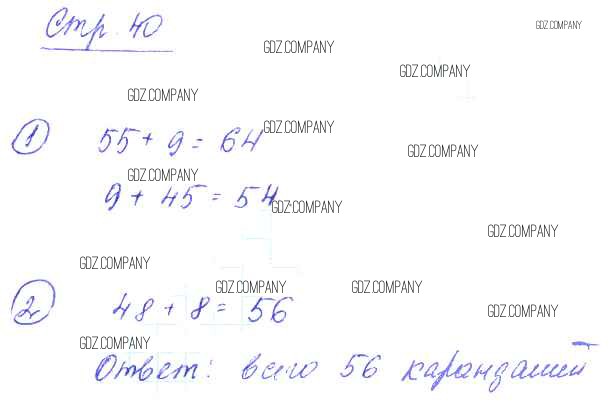 Стр. 40
GDZ.COMPANY
GDZ.COMPANY
GDZ.COMPANY
GDZ.COMPANY
1 55 + 9 = 64
GDZ.COMPANY
GDZ.COMPANY
GDZ.COMPANY
9 + 45 = 54
GDZ.COMPANY
GDZ.COMPANY
GDZ.COMPANY
GDZ.COMPANY
GDZ.COMPANY
2 48 + 8 = 56
GDZ.COMPANY
GDZ.COMPANY
Ответ: всего 56 карандашей